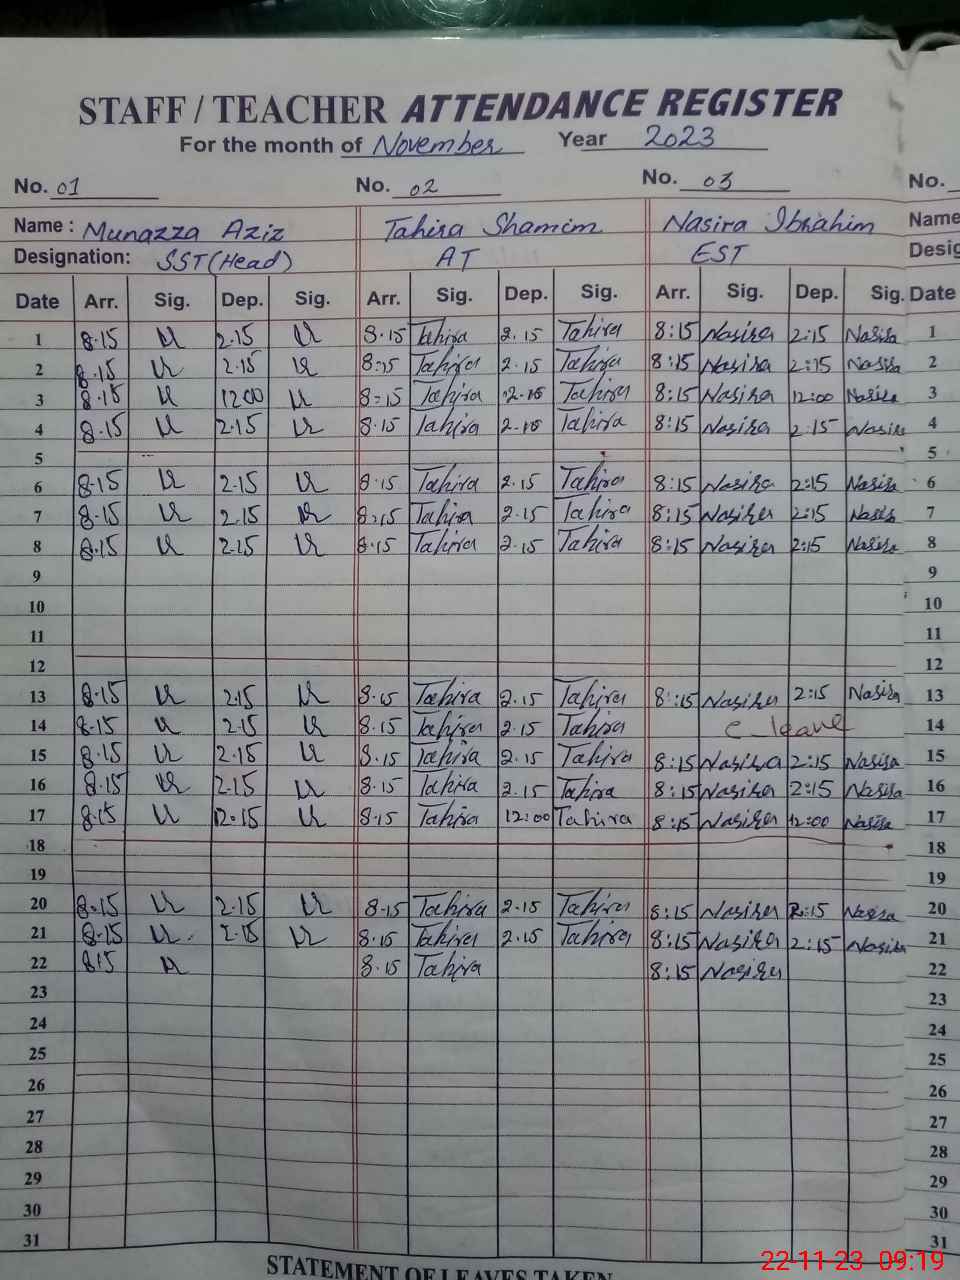 STAFF / TEACHER ATTENDANCE REGISTER
For the month of November Year 2023
No. 01 No. 02 No. 03 No.
Name : Munazza Aziz Tahira Shamim Nasira Ibrahim Name
Designation: SST (Head) AT EST Desig
Date Arr. Sig. Dep. Sig. Arr. Sig. Dep. Sig. Arr. Sig. Dep. Sig. Date
1 8.15 2.15 8.15 Tahira 2.15 Tahira 8:15 Nasira 2:15 Nasira 1
2 8.15 2.15 8:15 Tahira 2.15 Tahira 8:15 Nasira 2:15 Nasira 2
3 8.15 1200 8:15 Tahira Tahira 8:15 Nasira 12:00 Nasira 3
4 8.15 2.15 8.15 Tahira 2.15 Tahira 8:15 Nasira 2:15 Nasira 4
5 5
6 8.15 2.15 8.15 Tahira 2.15 Tahira 8:15 Nasira 2:15 Nasira 6
7 8.15 2.15 8:15 Tahira 2.15 Tahira 8:15 Nasira 2:15 Nasira 7
8 8.15 2.15 8.15 Tahira 2.15 Tahira 8:15 Nasira 2:15 Nasira 8
9 9
10 10
11 11
12 12
13 8.15 2.15 8.15 Tahira 2.15 Tahira 8:15 Nasira 2:15 Nasira 13
14 8.15 2.15 8.15 Tahira 2.15 Tahira c leave 14
15 8.15 2.15 8.15 Tahira 2.15 Tahira 8:15 Nasira 2:15 Nasira 15
16 8.15 2.15 8.15 Tahira 2.15 Tahira 8:15 Nasira 2:15 Nasira 16
17 8.15 12.15 8.15 Tahira 12:00 Tahira 8:15 Nasira 12:00 Nasira 17
18 18
19 19
20 8.15 2.15 8.15 Tahira 2.15 Tahira 8:15 Nasira 2:15 Nasira 20
21 8.15 2.15 8.15 Tahira 2.15 Tahira 8:15 Nasira 2:15 Nasira 21
22 815 8.15 Tahira 8:15 Nasira 22
23 23
24 24
25 25
26 26
27 27
28 28
29 29
30 30
31 31
STATEMENT OF LEAVES TAKEN
22-11-23 09:19